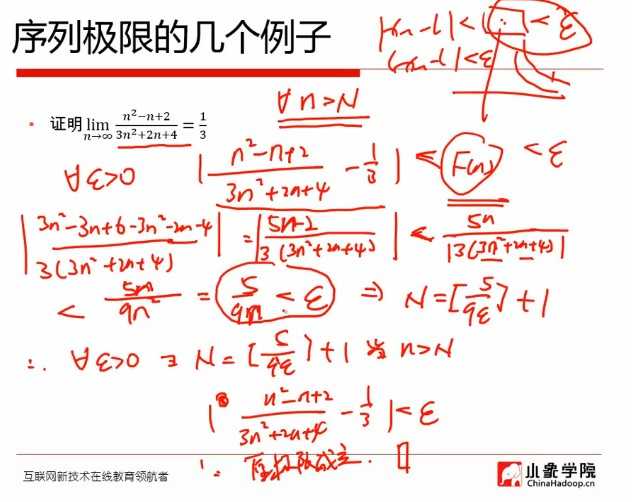 序列极限的几个例子
|xn-l| < □ < ε
|xn-l| < ε
∀ n>N
• 证明 lim n→∞ (n²−n+2)/(3n²+2n+4) = 1/3
∀ ε>0 | (n²-n+2)/(3n²+2n+4) - 1/3 | < F(n) < ε
| (3n²-3n+6-3n²-2n-4)/(3(3n²+2n+4)) | = | (5n-2)/(3(3n²+2n+4)) | < 5n/|3(3n²+2n+4)|
< 5n/9n² = 5/9n < ε ⇒ N=[5/9ε]+1
∴ ∀ε>0 ∃ N=[5/9ε]+1 当 n>N
| (n²-n+2)/(3n²+2n+4) - 1/3 | < ε
∴ 原极限成立. □
互联网新技术在线教育领航者
小象学院
ChinaHadoop.cn